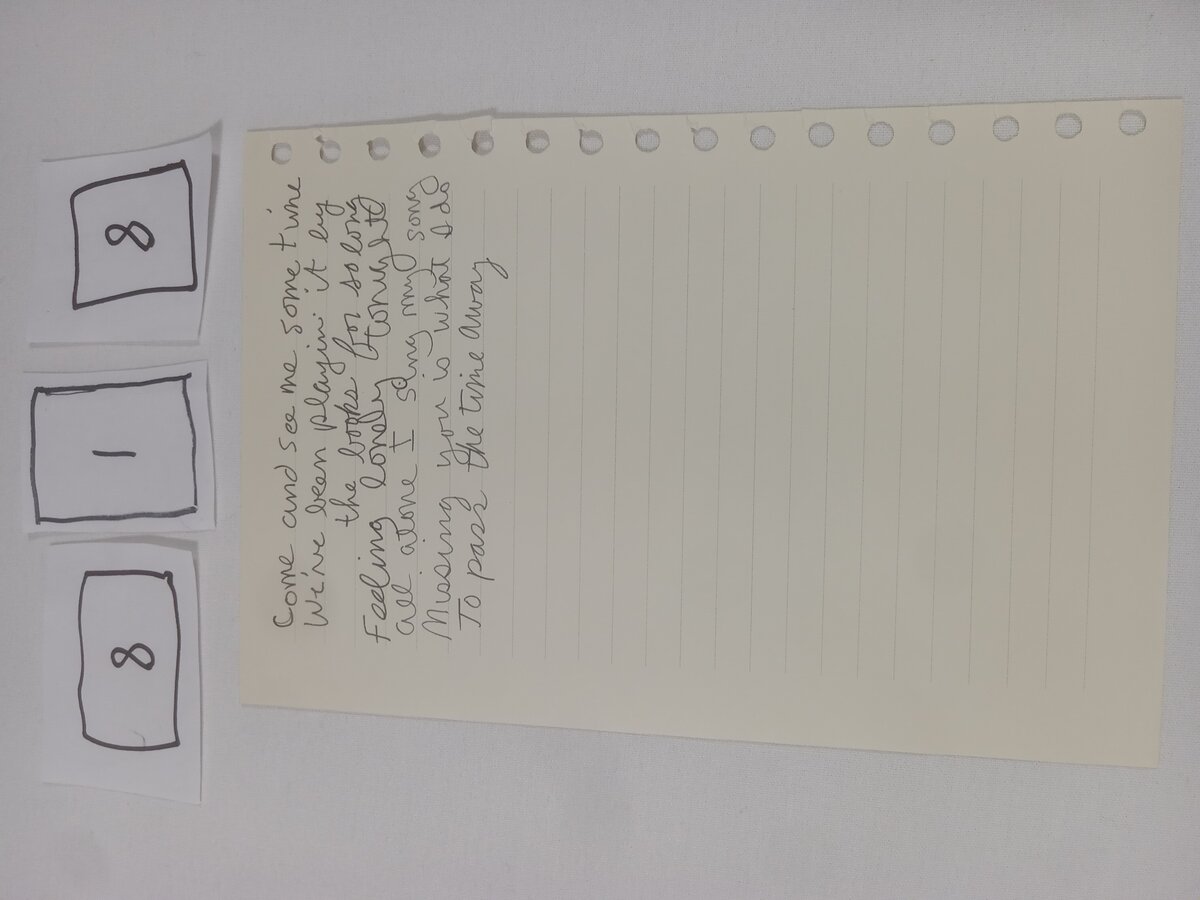 8 1 8
Come and see me some time
We've been playin' it by
the books for so long
Feeling lonely tonight
all alone I sing my song
Missing you is what I do
To pass the time away